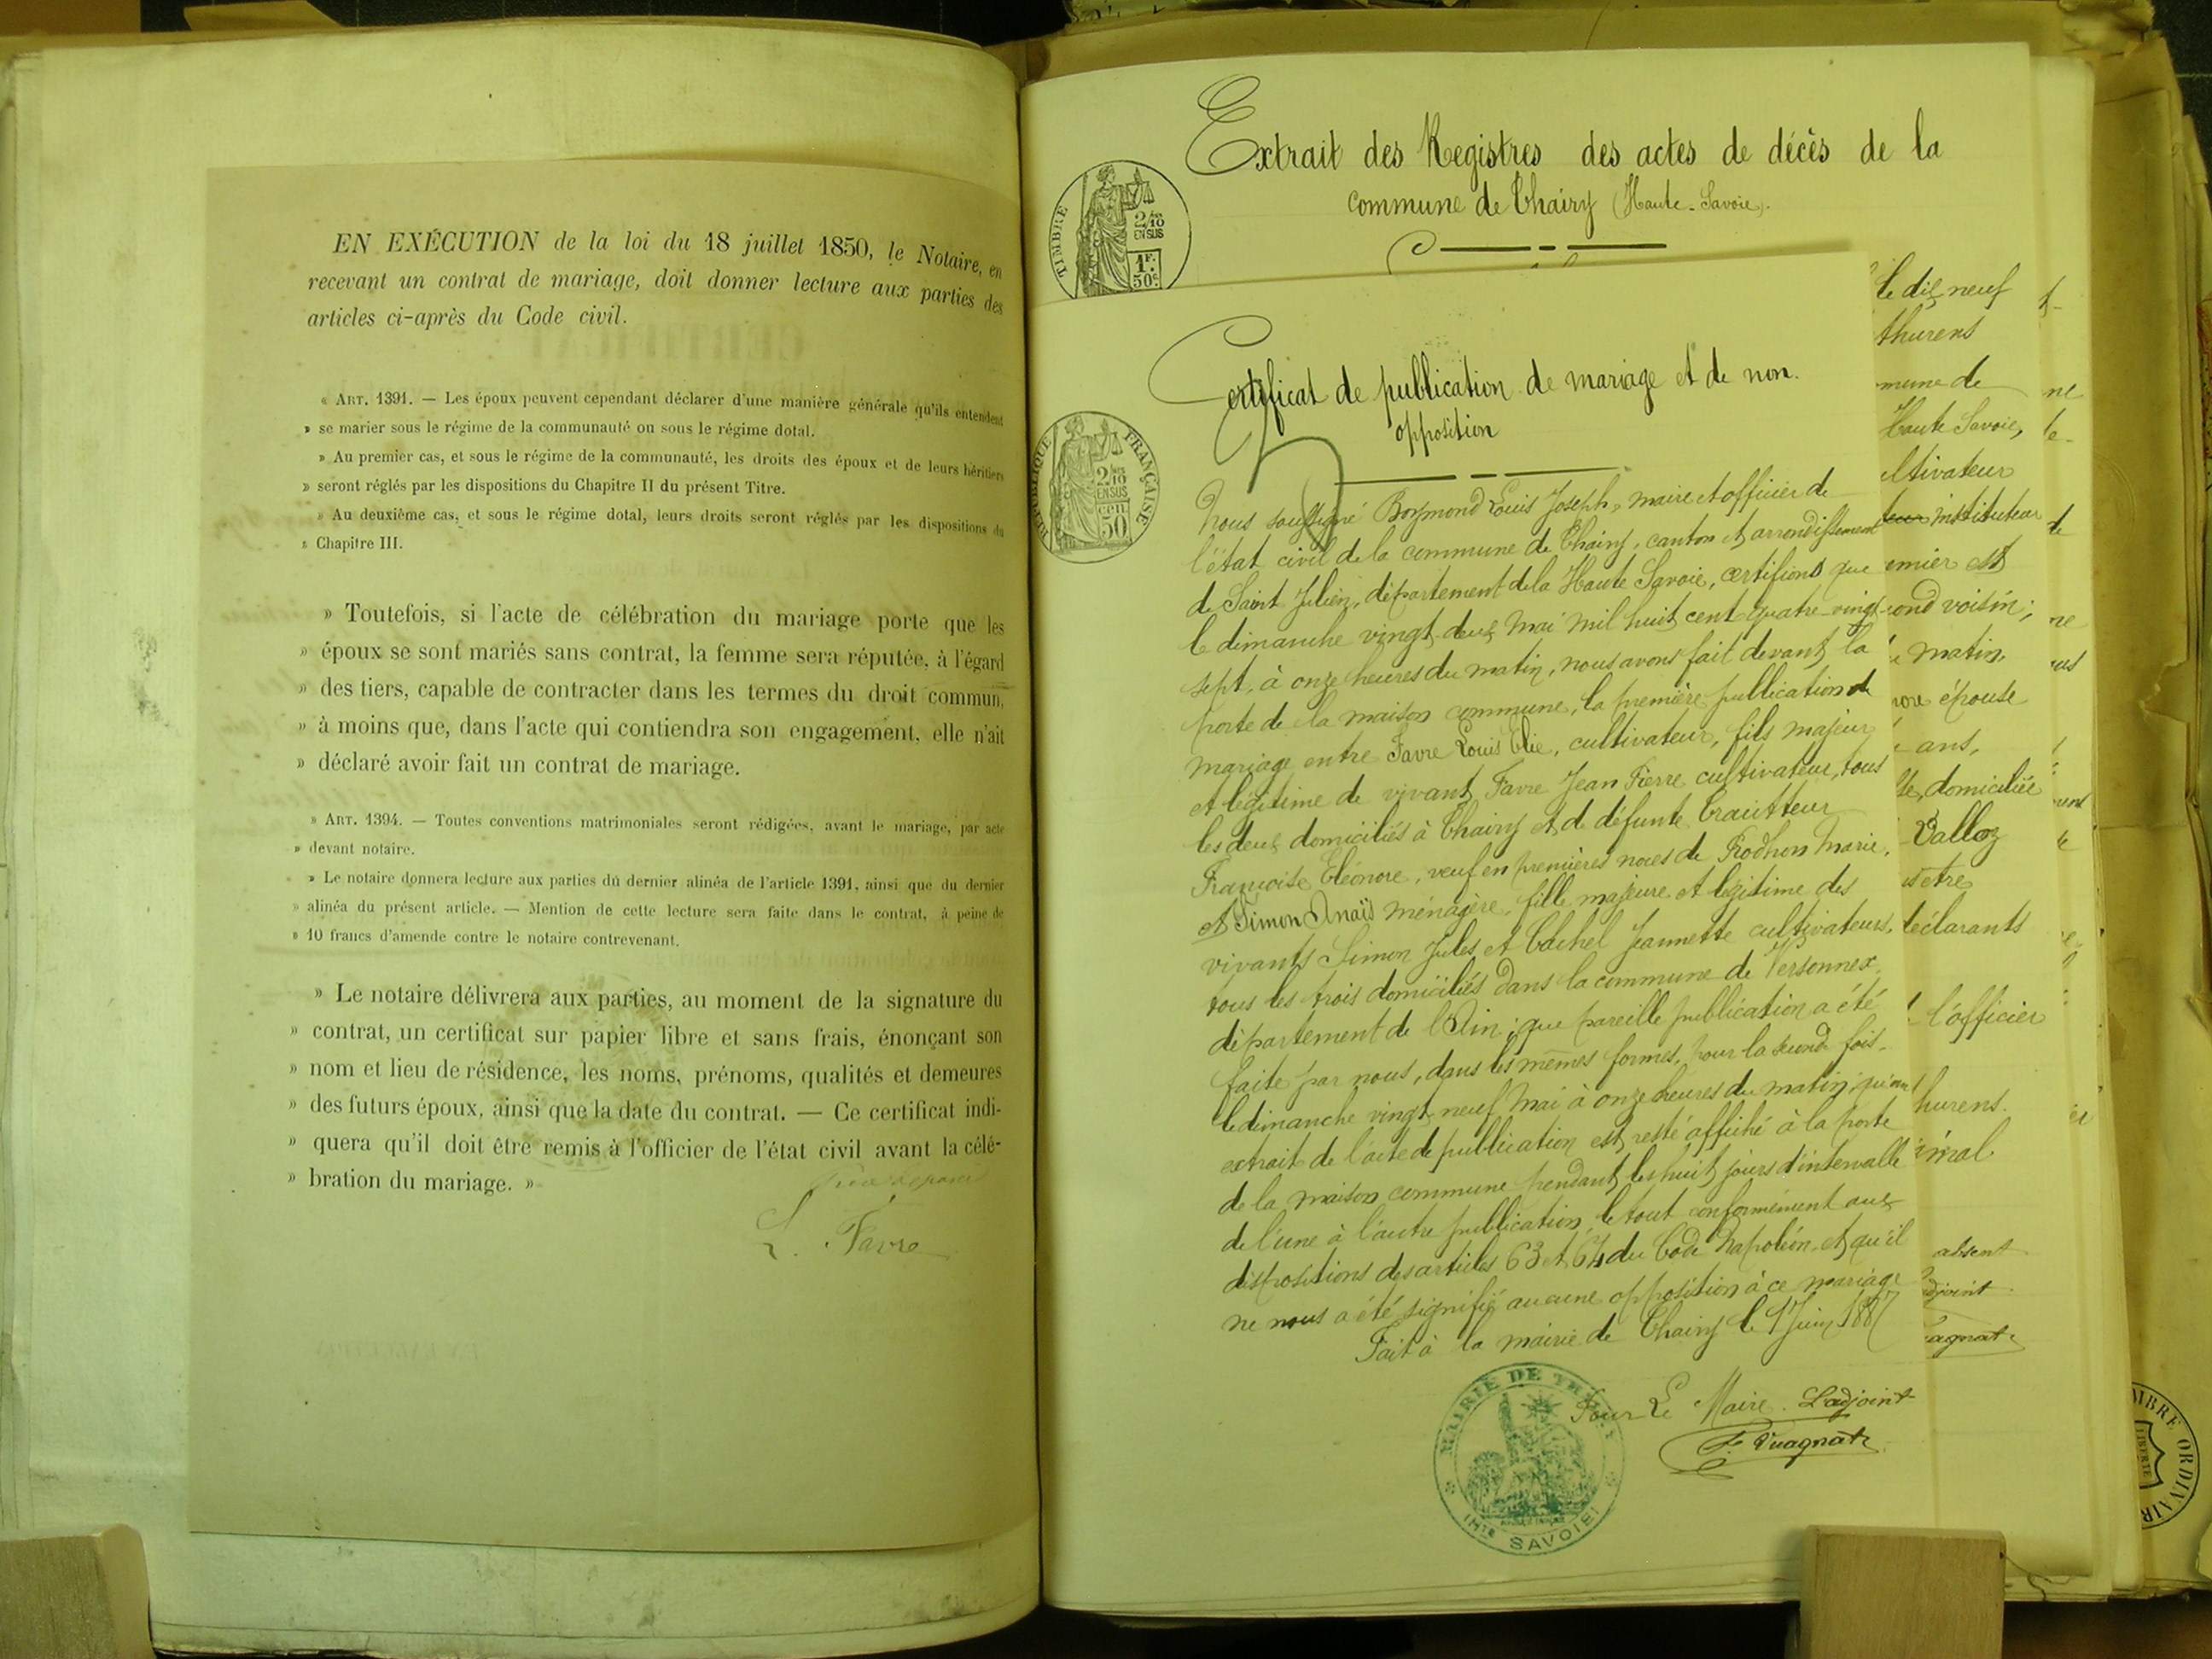 EN EXÉCUTION de la loi du 18 juillet 1850, le Notaire, en
recevant un contrat de mariage, doit donner lecture aux parties des
articles ci-après du Code civil.
« ART. 1391. — Les époux peuvent cependant déclarer d'une manière générale qu'ils entendent
» se marier sous le régime de la communauté ou sous le régime dotal.
» Au premier cas, et sous le régime de la communauté, les droits des époux et de leurs héritiers
» seront réglés par les dispositions du Chapitre II du présent Titre.
» Au deuxième cas, et sous le régime dotal, leurs droits seront réglés par les dispositions du
» Chapitre III.
» Toutefois, si l'acte de célébration du mariage porte que les
» époux se sont mariés sans contrat, la femme sera réputée, à l'égard
» des tiers, capable de contracter dans les termes du droit commun,
» à moins que, dans l'acte qui contiendra son engagement, elle n'ait
» déclaré avoir fait un contrat de mariage.
» ART. 1394. — Toutes conventions matrimoniales seront rédigées, avant le mariage, par acte
» devant notaire.
» Le notaire donnera lecture aux parties du dernier alinéa de l'article 1391, ainsi que du dernier
» alinéa du présent article. — Mention de cette lecture sera faite dans le contrat, à peine de
» 10 francs d'amende contre le notaire contrevenant.
» Le notaire délivrera aux parties, au moment de la signature du
» contrat, un certificat sur papier libre et sans frais, énonçant son
» nom et lieu de résidence, les noms, prénoms, qualités et demeures
» des futurs époux, ainsi que la date du contrat. — Ce certificat indi-
» quera qu'il doit être remis à l'officier de l'état civil avant la célé-
» bration du mariage. »
L. Favre
Extrait des Registres des actes de décès de la
commune de Thairy (Haute-Savoie).
TIMBRE
2/10
EN SUS
1F.
50c.
Certificat de publication de mariage et de non
opposition
RÉPUBLIQUE FRANÇAISE
2/10
EN SUS
cen
50
Nous soussigné Boymond Louis Joseph, maire et officier de
l'état civil de la commune de Thairy, canton et arrondissement
de Saint Julien, département de la Haute Savoie, certifions que
le dimanche vingt-deux Mai mil huit cent quatre-vingt
sept, à onze heures du matin, nous avons fait devant la
porte de la maison commune, la première publication de
mariage entre Favre Louis Elie, cultivateur, fils majeur
et légitime de vivant Favre Jean Pierre cultivateur, tous
les deux domiciliés à Thairy et de défunte Traitteur
Françoise Eléonore, veuf en premières noces de Rodhon Marie,
et Simon Anaïs ménagère, fille majeure et légitime des
vivants Simon Jules et Bachel Jeannette cultivateurs,
tous les trois domiciliés dans la commune de Versonnex
département de l'Ain; que pareille publication a été
faite par nous, dans les mêmes formes, pour la seconde fois
le dimanche vingt-neuf Mai à onze heures du matin; qu'un
extrait de l'acte de publication est resté affiché à la porte
de la maison commune pendant les huit jours d'intervalle
de l'une à l'autre publication, le tout conformément aux
dispositions des articles 63 et 64 du Code Napoléon, et qu'il
ne nous a été signifié aucune opposition à ce mariage
Fait à la mairie de Thairy le 1 Juin 1887
Pour Le Maire. L'adjoint
F. Vuagnat
MAIRIE DE THAIRY
(HTE SAVOIE)
le dix neuf
thurens
mune de
Haute Savoie,
ltivateur
instituteur
emier est
cond voisin;
matin,
nore épouse
ans,
te, domiciliée
Valloz
être
déclarants
l'officier
hurens.
absent
djoint
agnat
TIMBRE ORDINAIRE